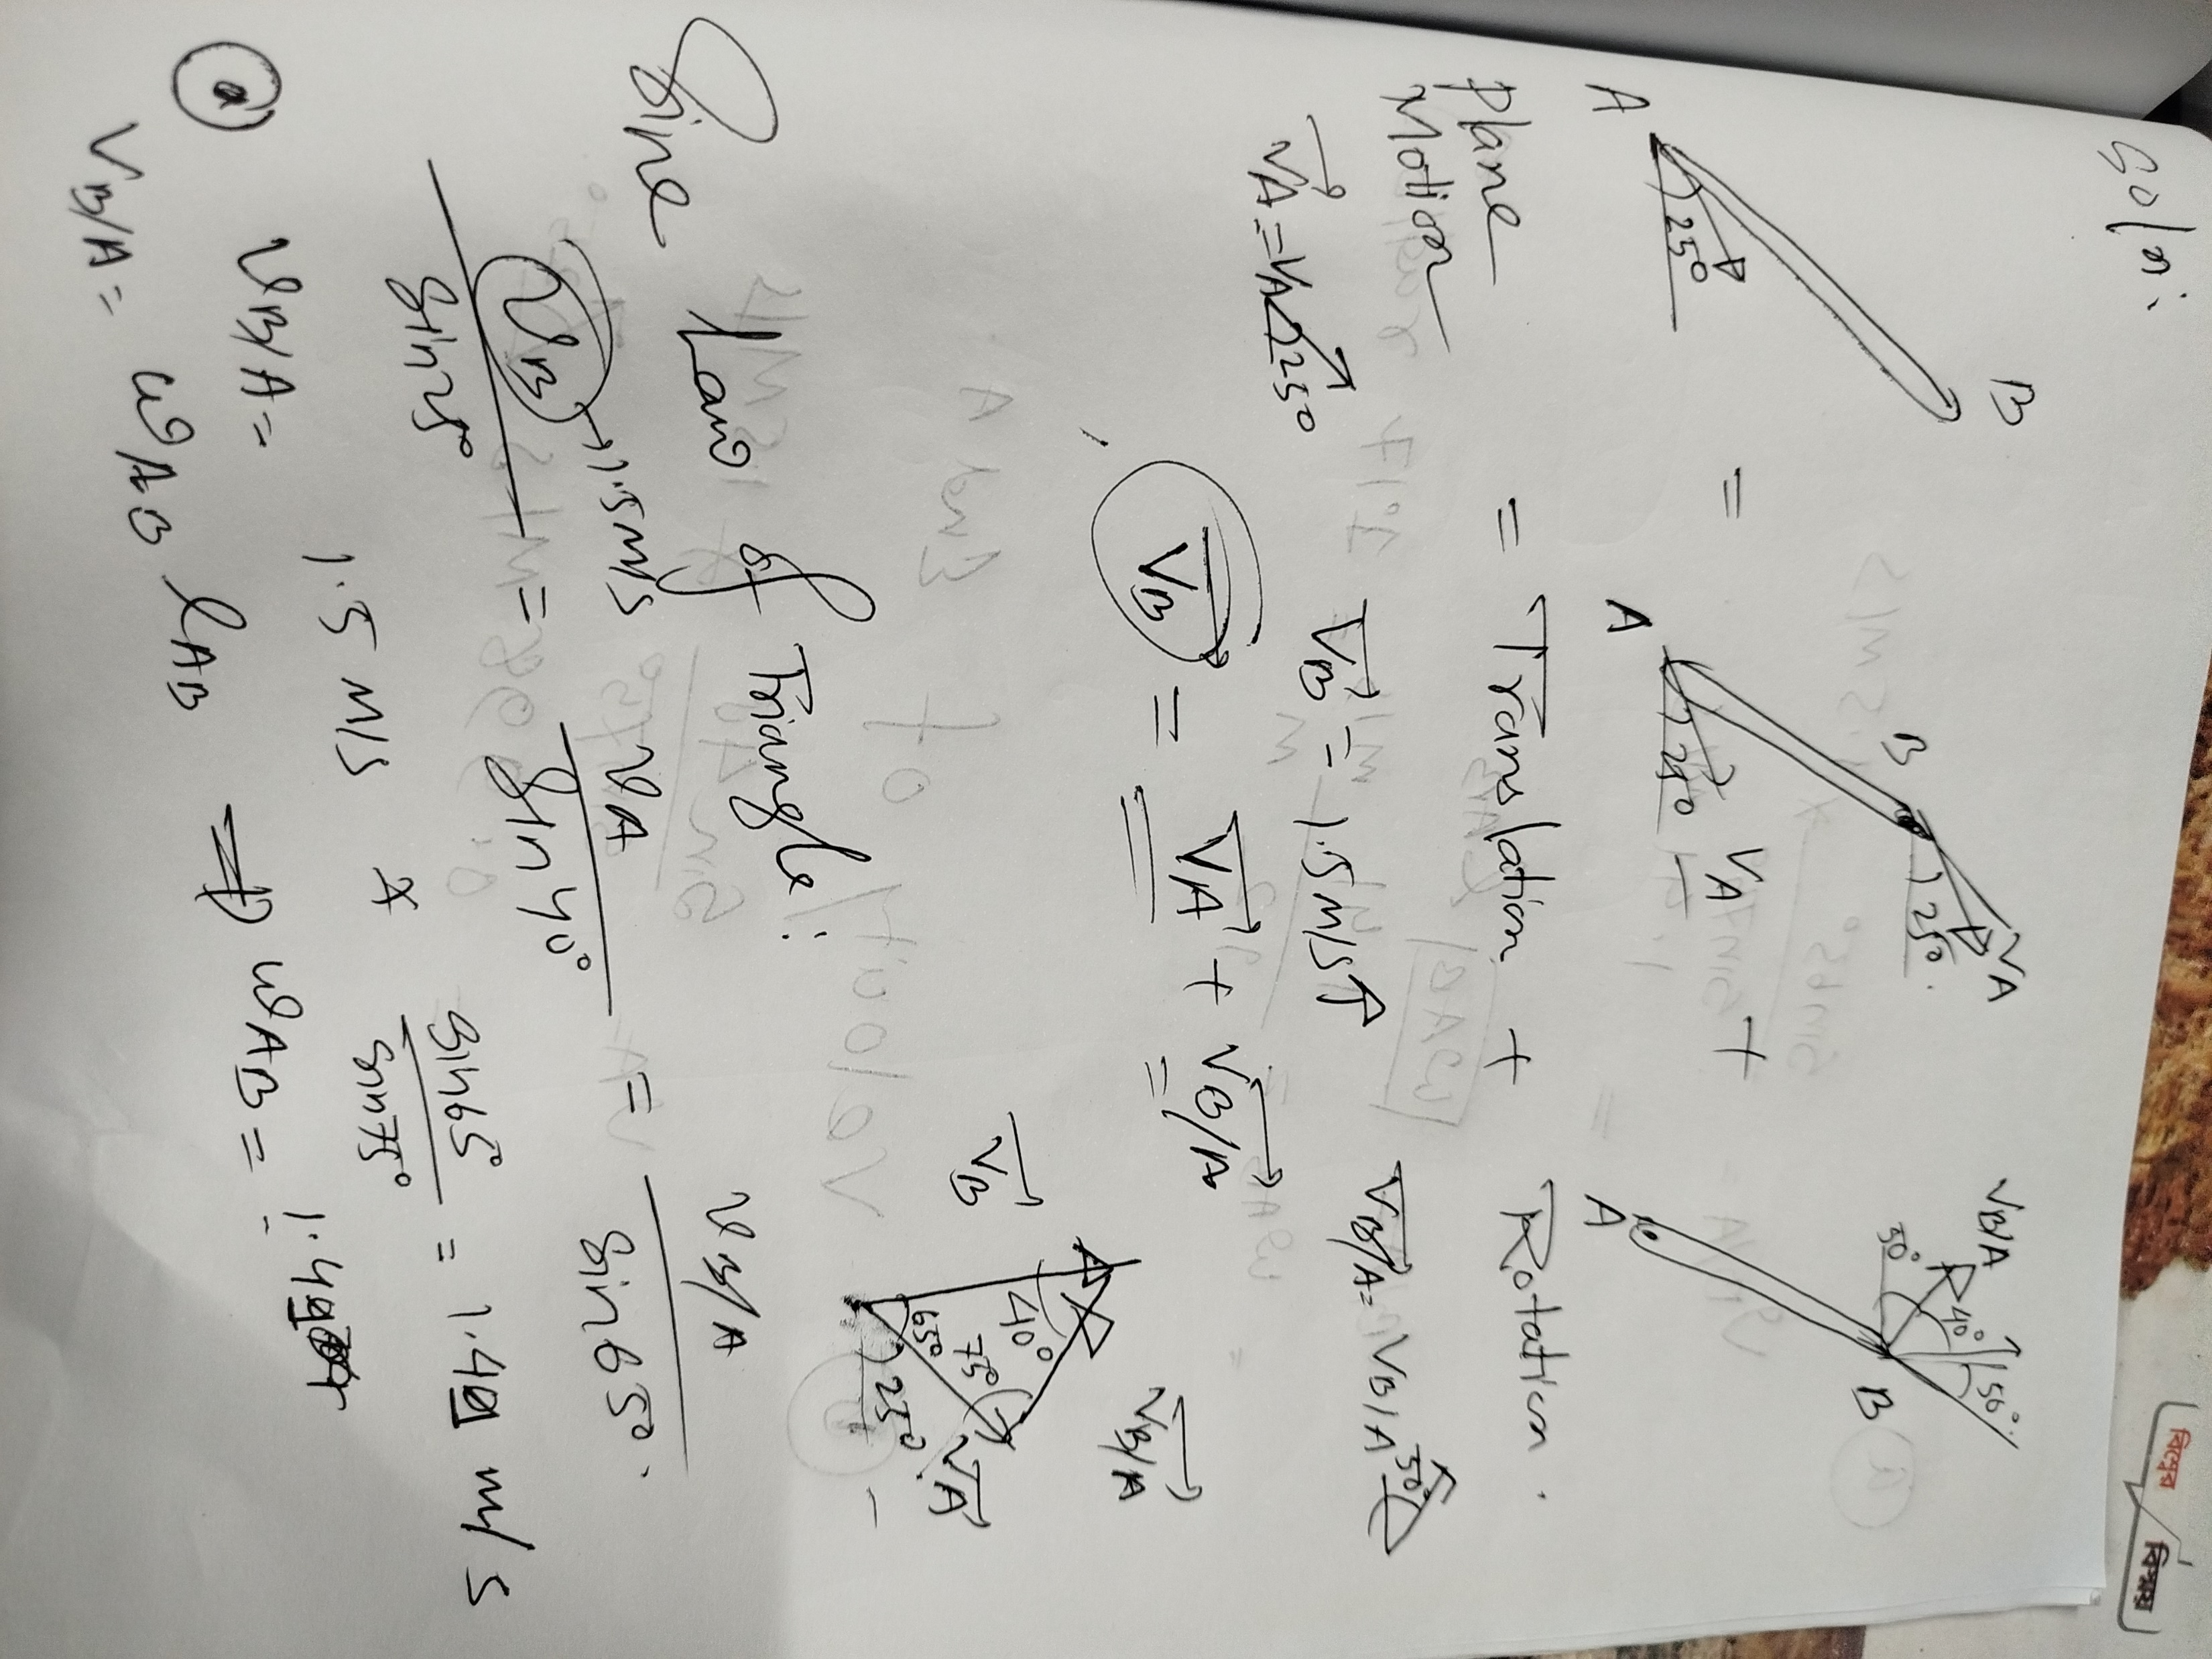 Soln:
A 25° B = A 25° VA B 25° VA + A B VB/A 50° 40° 50°
Plane Motion = Translation + Rotation.
VA = VA 25° VB = 1.5 m/s ↑ VB/A = VB/A 50°
VB = VA + VB/A
VB 40° 75° 65° 25° VA VB/A
Sine Law of Triangle:
VB → 1.5 m/s / Sin 75° = VA / Sin 40° = VB/A / Sin 65°.
a) VB/A = 1.5 m/s × Sin 65° / Sin 75° = 1.4 m/s
VB/A = ωAB lAB ⇒ ωAB = 1.4
বিশেষ